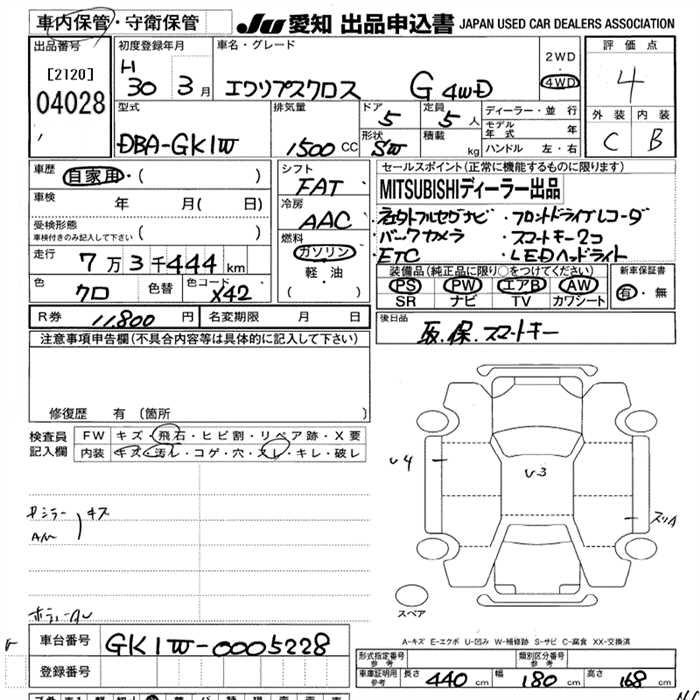 車内保管・守衛保管
JU 愛知 出品申込書 JAPAN USED CAR DEALERS ASSOCIATION
出品番号
[2120]
04028
初度登録年月
H
30 3月
車名・グレード
エクリプスクロス G 4WD
2WD
・
4WD
評価点
4
外装 内装
C B
型式
DBA-GK1W
排気量
1500 CC
ドア
5
定員
5人
形状
SW
積載
kg
ディーラー・並行
モデル年式 年
ハンドル 左・右
車歴
自家用・( )
車検
年 月( 日)
受検形態
車検付きのみ記入して下さい ( )
走行
7万3千444km
色
クロ
色替
色コード
X42
シフト
FAT
冷房
AAC
燃料
ガソリン
・
軽・油
( )
セールスポイント(正常に機能するものに限ります)
MITSUBISHIディーラー出品
・フロントドライブレコーダ
・バックカメラ ・スマートキー2コ
・ETC ・LEDヘッドライト
装備品(純正品に限り○をつけてください)
PS PW エアB AW
SR ナビ TV カワシート
新車保証書
有・無
R券 11,800円
名変期限 月 日
後日品
取.保.スマートキー
注意事項申告欄(不具合内容等は具体的に記入して下さい)
修復歴 有(箇所 )
検査員
記入欄
FW キズ・飛石・ヒビ割・リペア跡・X要
内装 キズ・汚レ・コゲ・穴・スレ・キレ・破レ
キズ
U4
U-3
スリキ
スペア
A-キズ E-エクボ U-凹み W-補修跡 S-サビ C-腐食 XX-交換済
車台番号
GK1W-0005228
登録番号
形式指定番号
参考
類別区分番号
参考
車庫証明用
参考
長さ 440cm 幅 180cm 高さ 168cm